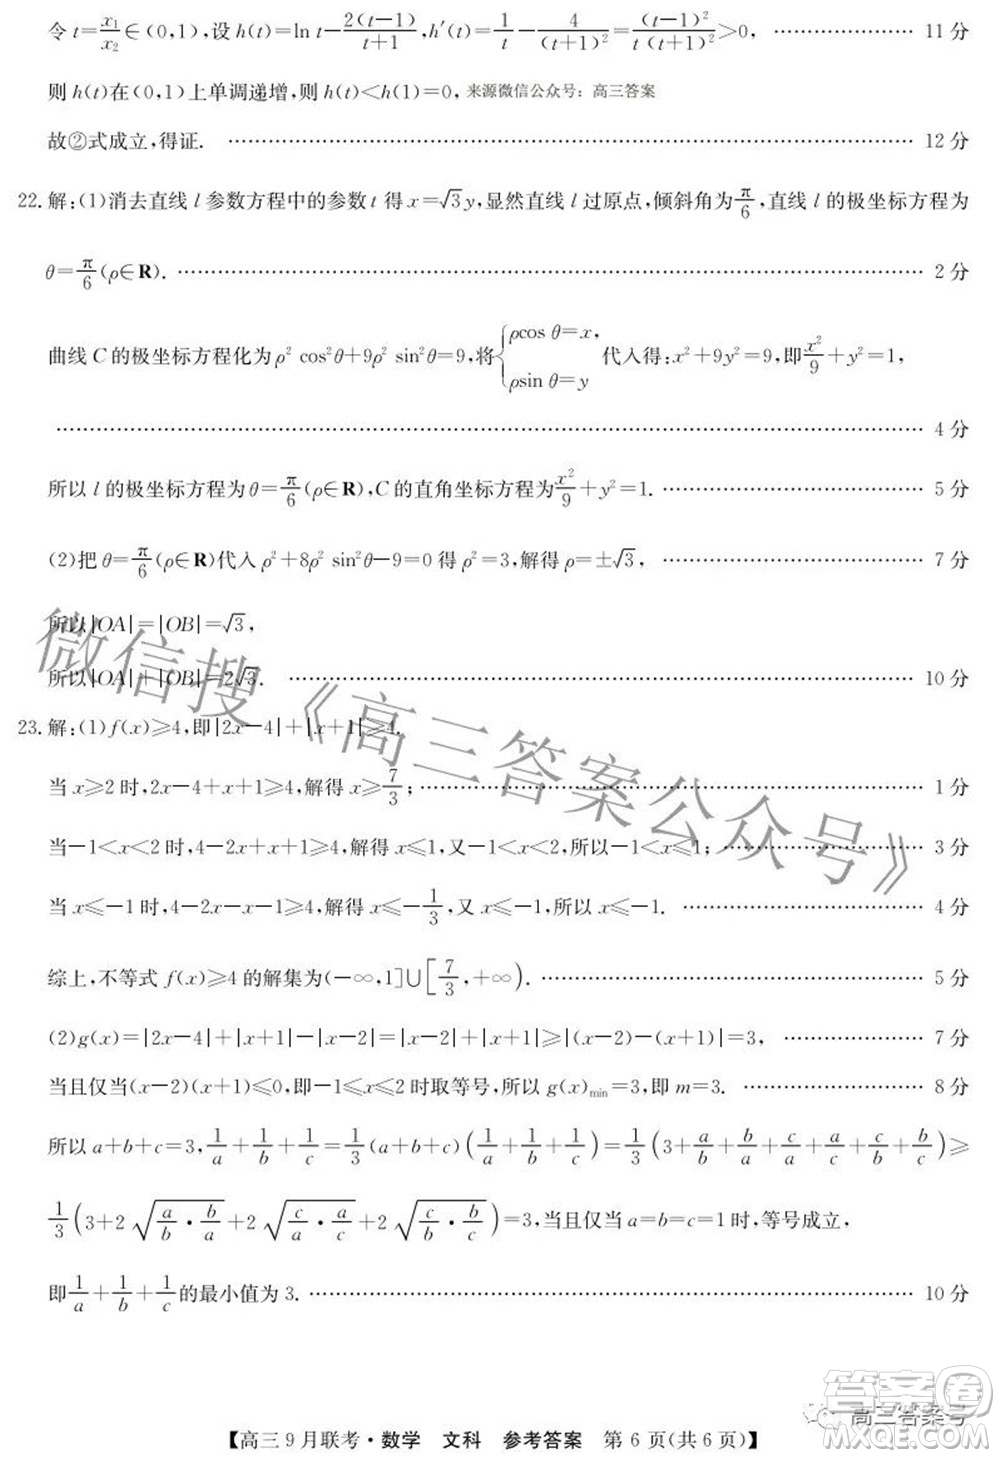 令 t=x₁/x₂∈(0,1),设 h(t)=ln t−2(t−1)/(t+1),h′(t)=1/t−4/(t+1)²=(t−1)²/(t(t+1)²)>0, …… 11 分
则 h(t)在(0,1)上单调递增,则 h(t)<h(1)=0, 来源微信公众号：高三答案
故②式成立,得证. …… 12 分
22.解:(1)消去直线 l 参数方程中的参数 t 得 x=√3y,显然直线 l 过原点,倾斜角为π/6,直线 l 的极坐标方程为
θ=π/6(ρ∈R). …… 2 分
曲线 C 的极坐标方程化为 ρ² cos²θ+9ρ² sin²θ=9,将{ρcos θ=x, ρsin θ=y 代入得:x²+9y²=9,即x²/9+y²=1,
…… 4 分
所以 l 的极坐标方程为 θ=π/6(ρ∈R),C 的直角坐标方程为x²/9+y²=1. …… 5 分
(2)把 θ=π/6(ρ∈R)代入 ρ²+8ρ² sin²θ−9=0 得 ρ²=3,解得 ρ=±√3, …… 7 分
所以|OA|=|OB|=√3,
所以|OA|+|OB|=2√3. …… 10 分
23.解:(1)f(x)≥4,即|2x−4|+|x+1|≥4.
当 x≥2 时,2x−4+x+1≥4,解得 x≥7/3; …… 1 分
当−1<x<2 时,4−2x+x+1≥4,解得 x≤1,又−1<x<2,所以−1<x≤1; …… 3 分
当 x≤−1 时,4−2x−x−1≥4,解得 x≤−1/3,又 x≤−1,所以 x≤−1. …… 4 分
综上,不等式 f(x)≥4 的解集为(−∞,1]∪[7/3,+∞). …… 5 分
(2)g(x)=|2x−4|+|x+1|−|x−2|=|x−2|+|x+1|≥|(x−2)−(x+1)|=3, …… 7 分
当且仅当(x−2)(x+1)≤0,即−1≤x≤2 时取等号,所以 g(x)min=3,即 m=3. …… 8 分
所以 a+b+c=3,1/a+1/b+1/c=1/3(a+b+c)(1/a+1/b+1/c)=1/3(3+a/b+b/a+c/a+a/c+b/c+c/b)≥
1/3(3+2√(a/b·b/a)+2√(c/a·a/c)+2√(c/b·b/c))=3,当且仅当 a=b=c=1 时,等号成立,
即1/a+1/b+1/c的最小值为 3. …… 10 分
微信搜《高三答案公众号》
答案卷
高三答案号
MXQE.COM
【高三 9 月联考·数学 文科 参考答案 第 6 页(共 6 页)】